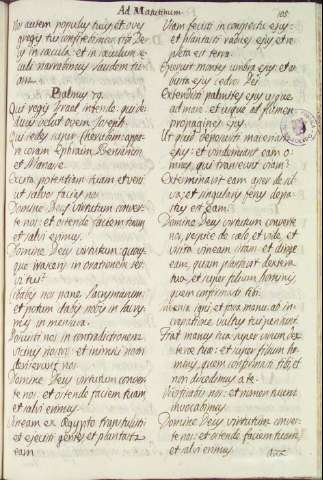 Ad Matutinum
105
Nos autem populus tuus et oves
gregis tui confitebimur tibi De
us in sæcula et in sæculum sæ
culi narrabimus laudem tu
am.
Psalmus 79.
Qui regis Israel intende qui de
ducis velut ovem Joseph.
Qui sedes super Cherubim: appa
re coram Ephraim, Benjamin,
et Manase.
Excita potentiam tuam et veni
ut salvos facias nos
Domine Deus virtutum conver
te nos: et ostende faciem tuam
et salvi erimus.
Domine Deus virtutum: quous
que
in orationem ser
vi tui?
Cibabis nos pane lacrymarum:
et potum dabis nobis in lacry
mis in mensura.
Posuisti nos in contradictionem
vicinis nostris: et inimici nostri
Domine Deus virtutum conver
te nos: et ostende faciem tuam
et salvi erimus
Vineam ex Ægypto transtulisti
et ejecisti gentes et plantasti
eam
Viam fecisti in conspectu ejus:
et plantasti radices ejus et im
plevit terram.
Operuit montes umbra ejus: et ar
busta ejus cedros Dei
Extendisti palmites ejus usque
ad mare: et usque ad flumen
propagines ejus
Ut quid
maceriam
ejus: et vindemiant eam o
mnes, qui
eam?
Exterminavit eam aper de sil
va: et singularis ferus depa
stus est eam.
Domine Deus virtutum converte
nos, respice de cælo et vide, et
visita vineam istam: et dirige
eam, quam plantavit dextera
tua, et super filium hominis,
quem confirmasti tibi.
igni et
manu: ab in
crepatione vultus tui peribunt
Fiat manus tua super virum dex
teræ tuæ: et super filium ho
minis, quem confirmasti tibi, et
non discedimus a te.
nos: et nomen tuum
invocabimus
Domine Deus virtutum conver
te nos: et ostende faciem tuam,
et salvi erimus